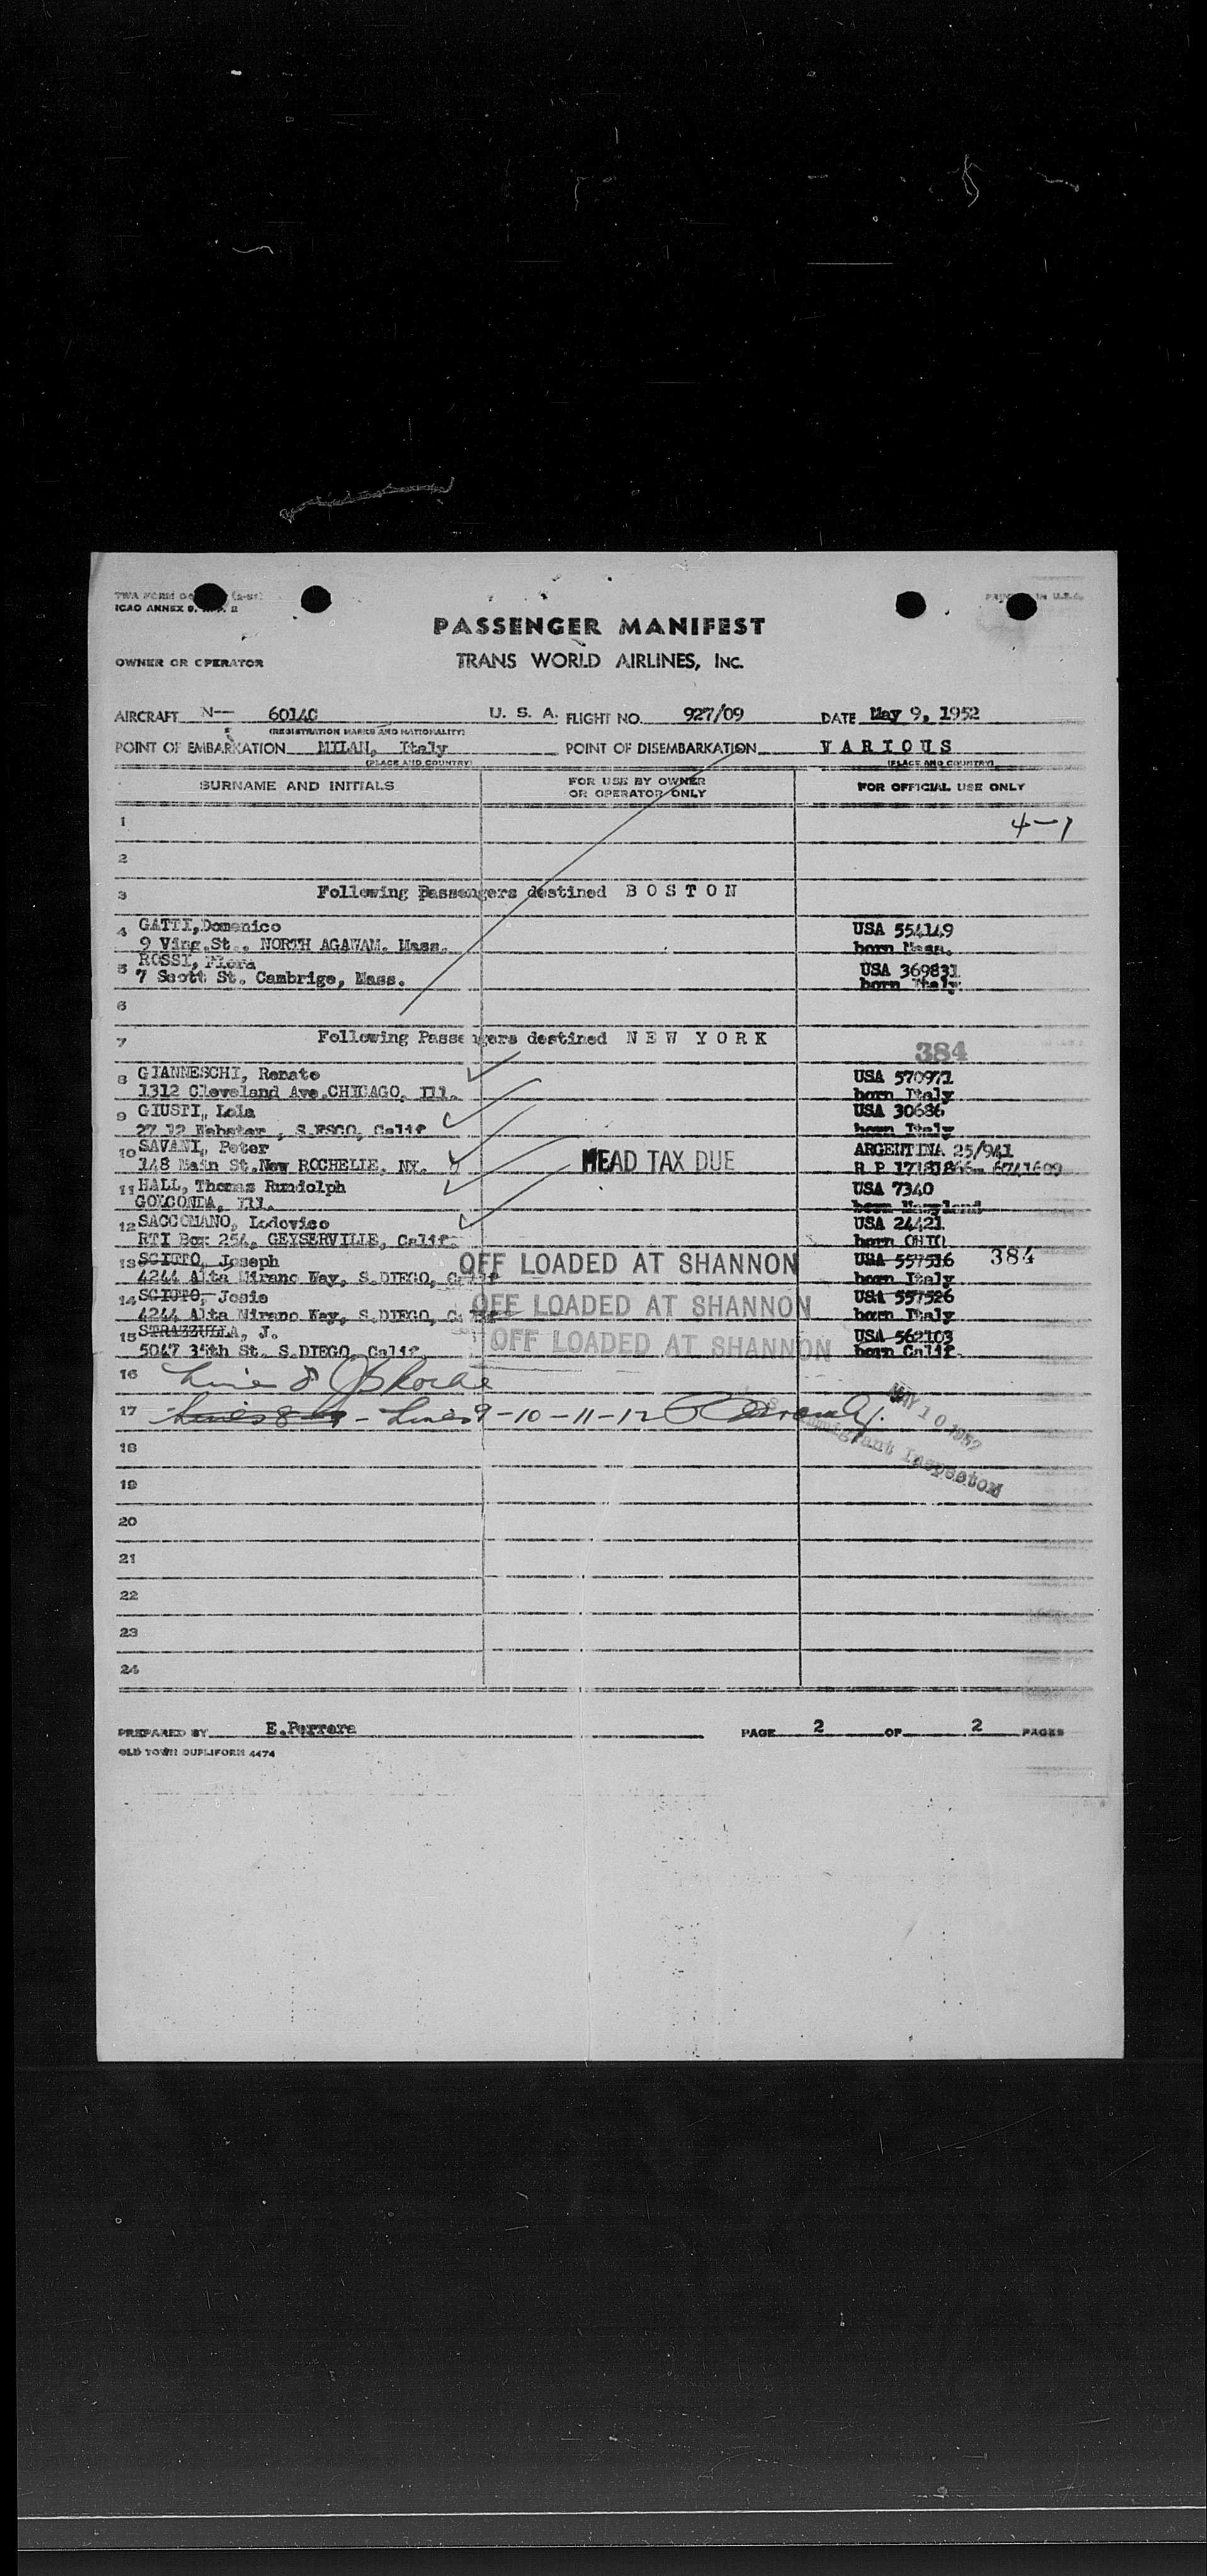 ICAO ANNEX 9,
PASSENGER MANIFEST
OWNER OR OPERATOR TRANS WORLD AIRLINES, INC.
AIRCRAFT N-- 6014C U. S. A. FLIGHT NO. 927/09 DATE May 9, 1952
(REGISTRATION MARKS AND NATIONALITY)
POINT OF EMBARKATION MILAN, Italy POINT OF DISEMBARKATION V A R I O U S
(PLACE AND COUNTRY) (PLACE AND COUNTRY)
SURNAME AND INITIALS FOR USE BY OWNER OR OPERATOR ONLY FOR OFFICIAL USE ONLY
1 4-1
2
3 Following Passengers destined B O S T O N
4 GATTI, Domenico USA 554149
9 St., NORTH AGAWAM. Mass. born Mass.
5 ROSSI, Flora USA 369831
7 Scott St. Cambrige, Mass. born Italy
6
7 Following Passengers destined N E W Y O R K
384
8 GIANNESCHI, Renato USA 570971
1312 Cleveland Ave.CHICAGO, Ill. born Italy
9 GIUSTI, Lola USA 30686
27 12 Webster , S.FSCO, Calif born Italy
10 SAVANI, Peter ARGENTINA 25/941
148 Main St.New ROCHELLE, NY. HEAD TAX DUE R P
11 HALL, Thomas Rundolph USA 7340
GOLCONDA, Ill. born Maryland
12 SACCOMANO, Lodovico USA 24421
RTI Box 254, GEYSERVILLE, Calif. born OHIO
13 SCIUTO, Joseph OFF LOADED AT SHANNON USA 557516 384
4244 Alta Mirano Way, S.DIEGO, Calif born Italy
14 SCIUTO, Josie OFF LOADED AT SHANNON USA 557526
4244 Alta Mirano Way, S.DIEGO, Calif born Italy
15 STRAZZULLA, J. OFF LOADED AT SHANNON USA 562103
5047 35th St. S.DIEGO Calif. born Calif.
16 Line 8
17 Lines 9-10-11-12
MAY 10 1952
Immigrant Inspector
18
19
20
21
22
23
24
PREPARED BY E.Perrera PAGE 2 OF 2 PAGES
OLD TOWN DUPLIFORM 4474